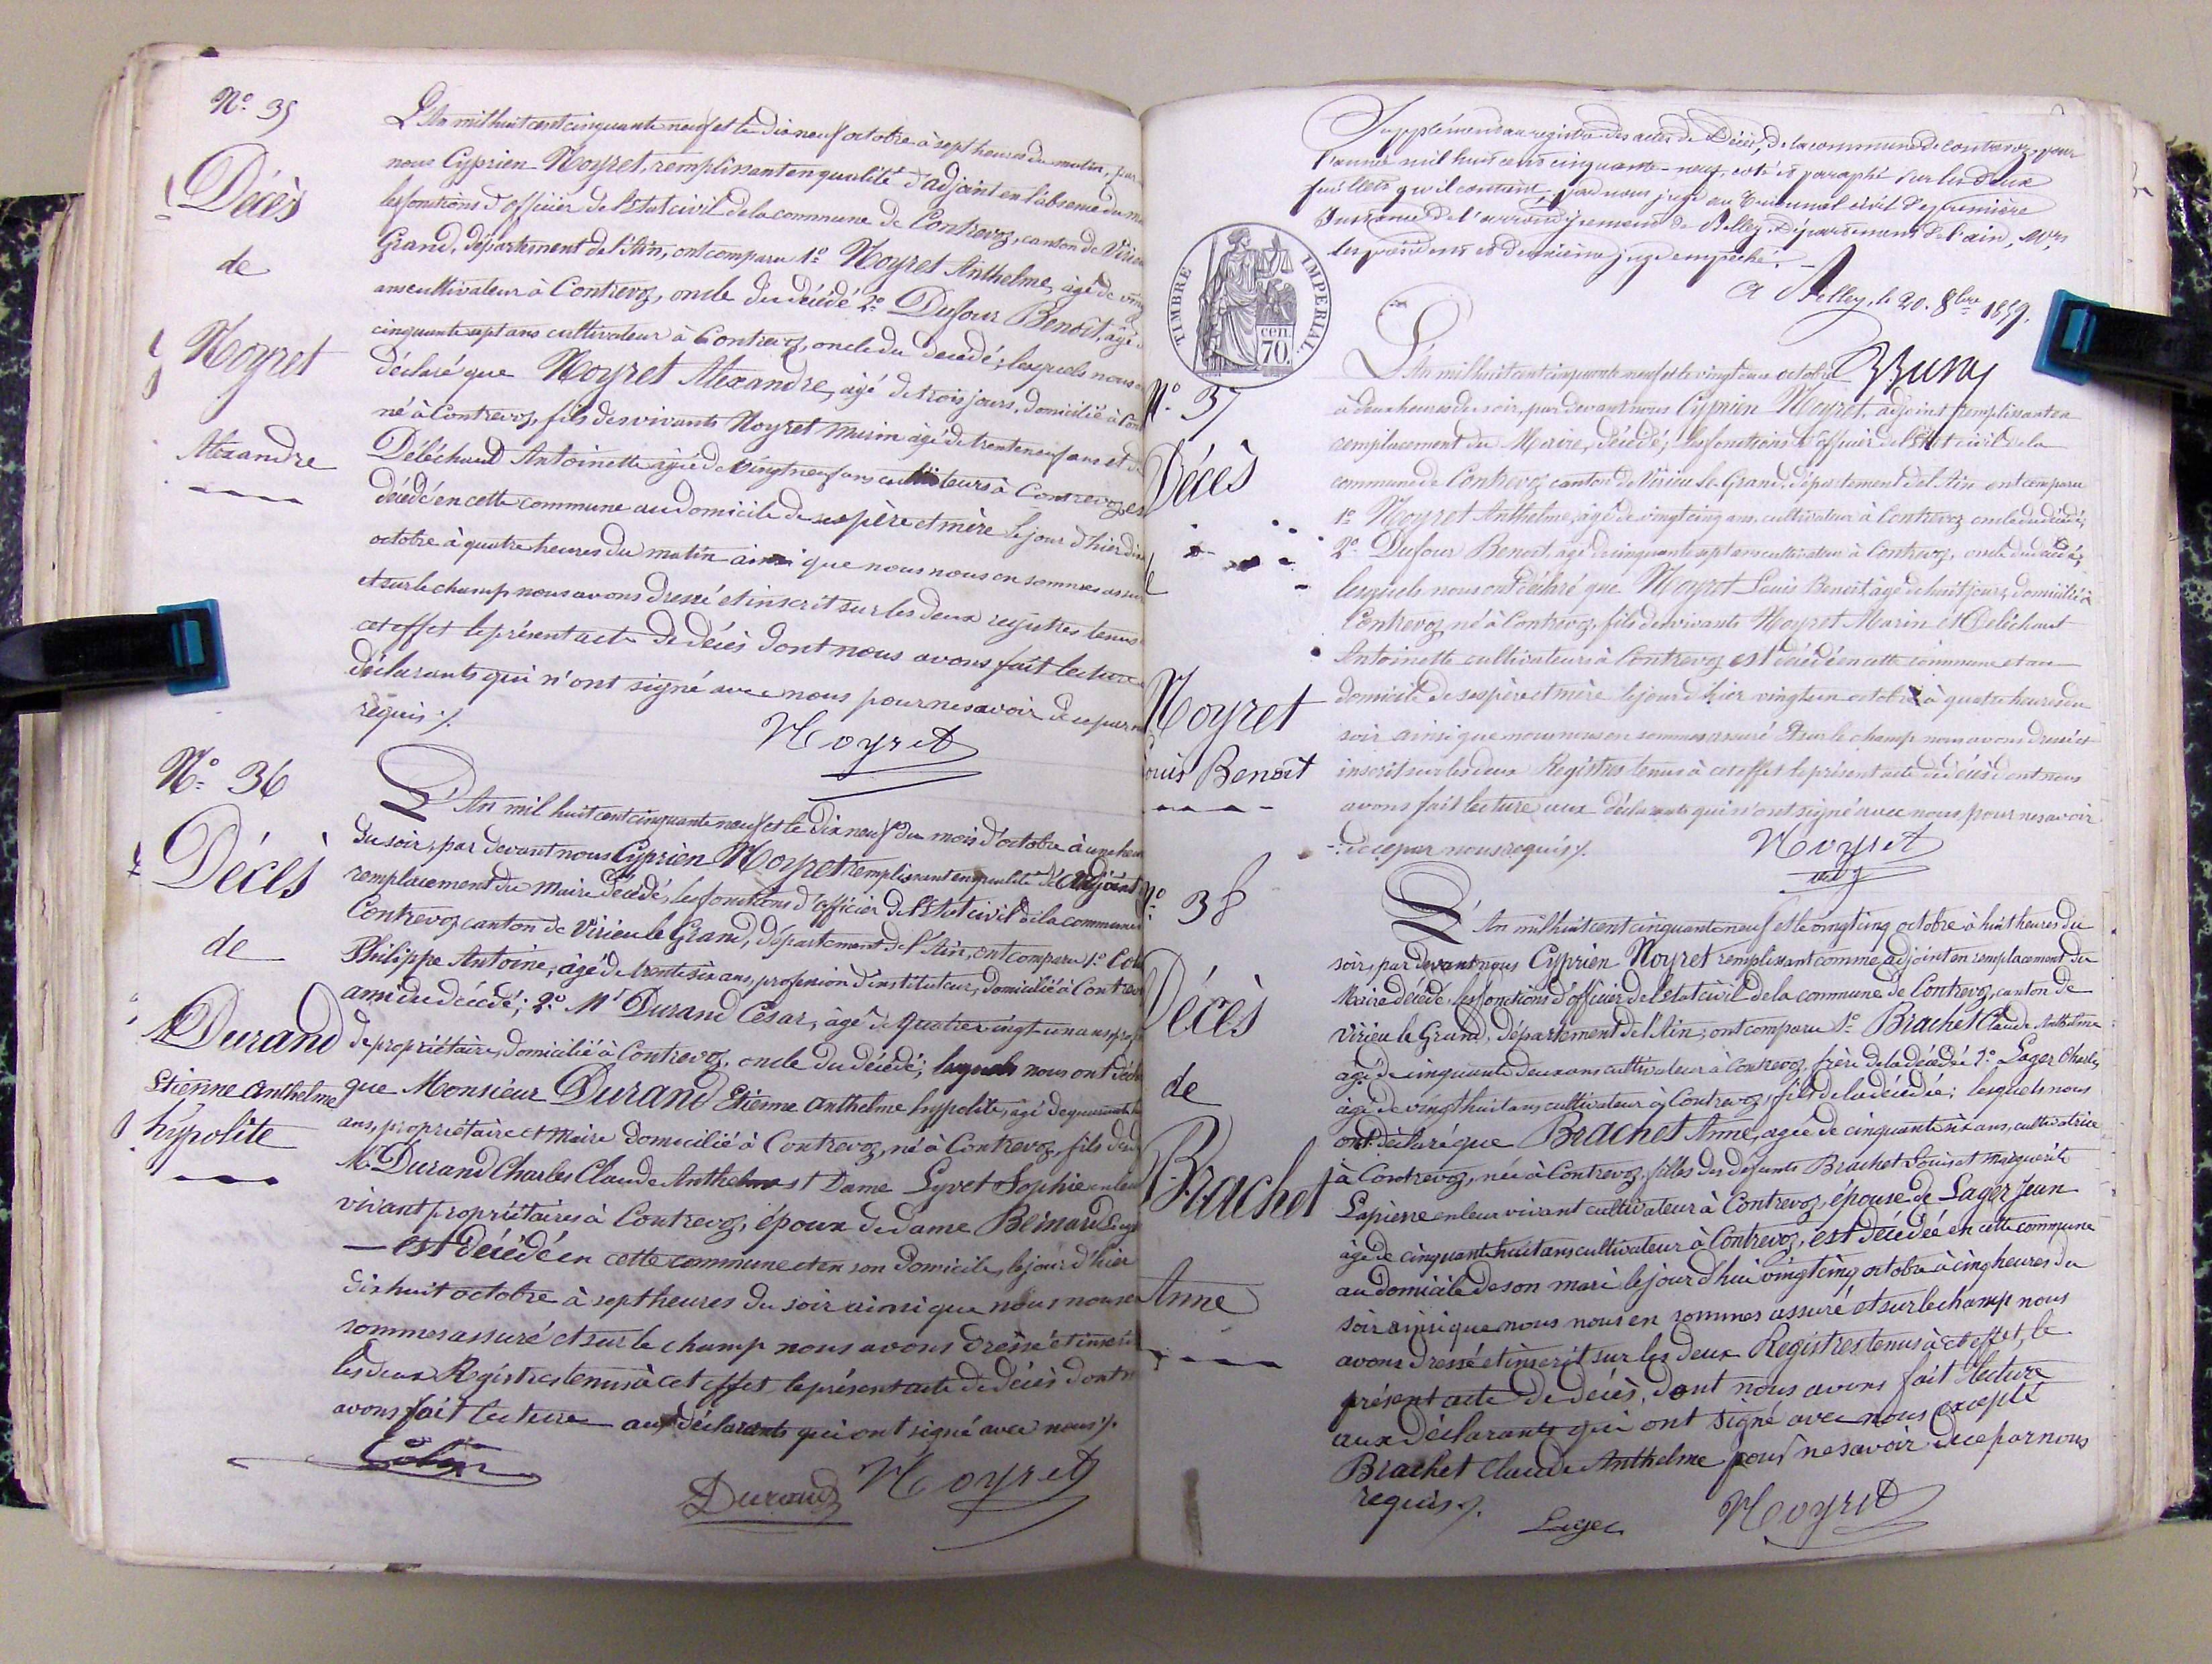 N° 35
Décès
de
Noyret
Alexandre
L'An mil huit cent cinquante neuf et le dix neuf octobre à sept heures du matin, par
nous Cyprien Noyret, remplissant en qualité d'adjoint en l'absence du
les fonctions d'officier de l'état civil de la commune de Contrevoz, canton de Virieu
Grand, département de l'Ain, ont comparu 1° Noyret Anthelme, âgé de vingt
ans cultivateur à Contrevoz, oncle du décédé 2° Dufour Benoit, âgé
cinquante sept ans cultivateur à Contrevoz, oncle du décédé; lesquels nous
déclaré que Noyret Alexandre, âgé de trois jours, domicilié à
né à Contrevoz, fils des vivants Noyret Marin âgé de trente neuf ans et
Déléchaud Antoinette âgée de vingt neuf ans cultivateurs à Contrevoz est
décédé en cette commune au domicile de ses père et mère le jour d'hier
octobre à quatre heures du matin ainsi que nous nous en sommes
et sur le champ nous avons dressé et inscrit sur les deux registres tenus
cet effet le présent acte de décès dont nous avons fait lecture
déclarants qui n'ont signé avec nous pour ne savoir de ce par
requis ./.
Noyret
N° 36
Décès
de
Durand
Etienne Anthelme
hypolite
L'An mil huit cent cinquante neuf et le dix neuf du mois d'octobre à une heure
du soir, par devant nous Cyprien Noyret remplissant en qualité d'adjoint
remplacement du Maire décédé, les fonctions d'officier de l'état civil de la commune
Contrevoz canton de Virieu le Grand, département de l'Ain, ont comparu 1°
Philippe Antoine, âgé de trente six ans, profession d'instituteur, domicilié à Contrevoz
ami du décédé; 2° Mr Durand César, âgé de quatre vingt un ans,
de propriétaire, domicilié à Contrevoz, oncle du décédé; lesquels nous ont
que Monsieur Durand Etienne Anthelme hyppolite, âgé de quarante
ans, propriétaire et Maire domicilié à Contrevoz, né à Contrevoz, fils
Mr Durand Charles Claude Anthelme et Dame Lyvet Sophie en leur
vivant propriétaires à Contrevoz, époux de dame Bernard
— est décédé en cette commune et en son domicile, le jour d'hier
dix huit octobre à sept heures du soir ainsi que nous nous en
sommes assuré et sur le champ nous avons dressé et inscrit
les deux Registres tenus à cet effet le présent acte de décès dont
avons fait lecture aux déclarants qui ont signé avec nous ./.
Colin
Durand Noyret
Supplément au registre des actes de Décès, de la commune de contrevoz, pour
l'année mil huit cent cinquante-neuf, coté et paraphé sur les deux
feuillets qu'il contient, par nous juge au Tribunal civil de première
Instance de l'arrondissement de Belley, département de l'ain,
les président et deuxième juge empêchés. —
A Belley, le 20. 8bre 1859.
TIMBRE IMPERIAL.
cen
70.
N° 37
Décès
de
Noyret
Louis Benoit
L'An mil huit cent cinquante neuf et le vingt deux octobre
à deux heures du soir, par devant nous Cyprien Noyret, adjoint remplissant en
remplacement du Maire, décédé, les fonctions d'officier de l'état civil de la
commune de Contrevoz canton de Virieu le Grand, département de l'Ain ont comparu
1° Noyret Anthelme, âgé de vingt cinq ans, cultivateur à Contrevoz oncle du décédé;
2° Dufour Benoit, âgé de cinquante sept ans cultivateur à Contrevoz, oncle du décédé;
lesquels nous ont déclaré que Noyret Louis Benoit, âgé de huit jours, domicilié à
Contrevoz, né à Contrevoz, fils des vivants Noyret Marin et Deléchaut
Antoinette cultivateurs à Contrevoz est décédé en cette commune et au
domicile de ses père et mère le jour d'hier vingt un octobre à quatre heures du
soir ainsi que nous nous en sommes assuré et sur le champ nous avons dressé et
inscrit sur les deux Registres tenus à cet effet le présent acte de décès dont nous
avons fait lecture aux déclarants qui n'ont signé avec nous pour ne savoir
de ce par nous requis ./.
Noyret
adj
N° 38
Décès
de
Brachet
Anne
L'An mil huit cent cinquante neuf et le vingt cinq octobre à huit heures du
soir, par devant nous Cyprien Noyret remplissant comme adjoint en remplacement du
Maire décédé, les fonctions d'officier de l'état civil de la commune de Contrevoz, canton de
Virieu le Grand, département de l'Ain; ont comparu 1° Brachet Claude Anthelme
âgé de cinquante deux ans cultivateur à Contrevoz, frère de la décédée 2° Lager Charles,
âgé de vingt huit ans cultivateur à Contrevoz, fils de la décédée; lesquels nous
ont déclaré que Brachet Anne, agée de cinquante six ans, cultivatrice
à Contrevoz, née à Contrevoz, filles des défunts Brachet Louis et Marguerite
Lapierre en leur vivant cultivateur à Contrevoz, épouse de Lager Jean
âgé de cinquante huit ans cultivateur à Contrevoz, est décédée en cette commune
au domicile de son mari le jour d'hui vingt cinq octobre à cinq heures du
soir ainsi que nous nous en sommes assuré et sur le champ nous
avons dressé et inscrit sur les deux Registres tenus à cet effet, le
présent acte de décès, dont nous avons fait lecture
aux déclarants qui ont signé avec nous excepté
Brachet Claude Anthelme pour ne savoir de ce par nous
requis ./.
Lager Noyret